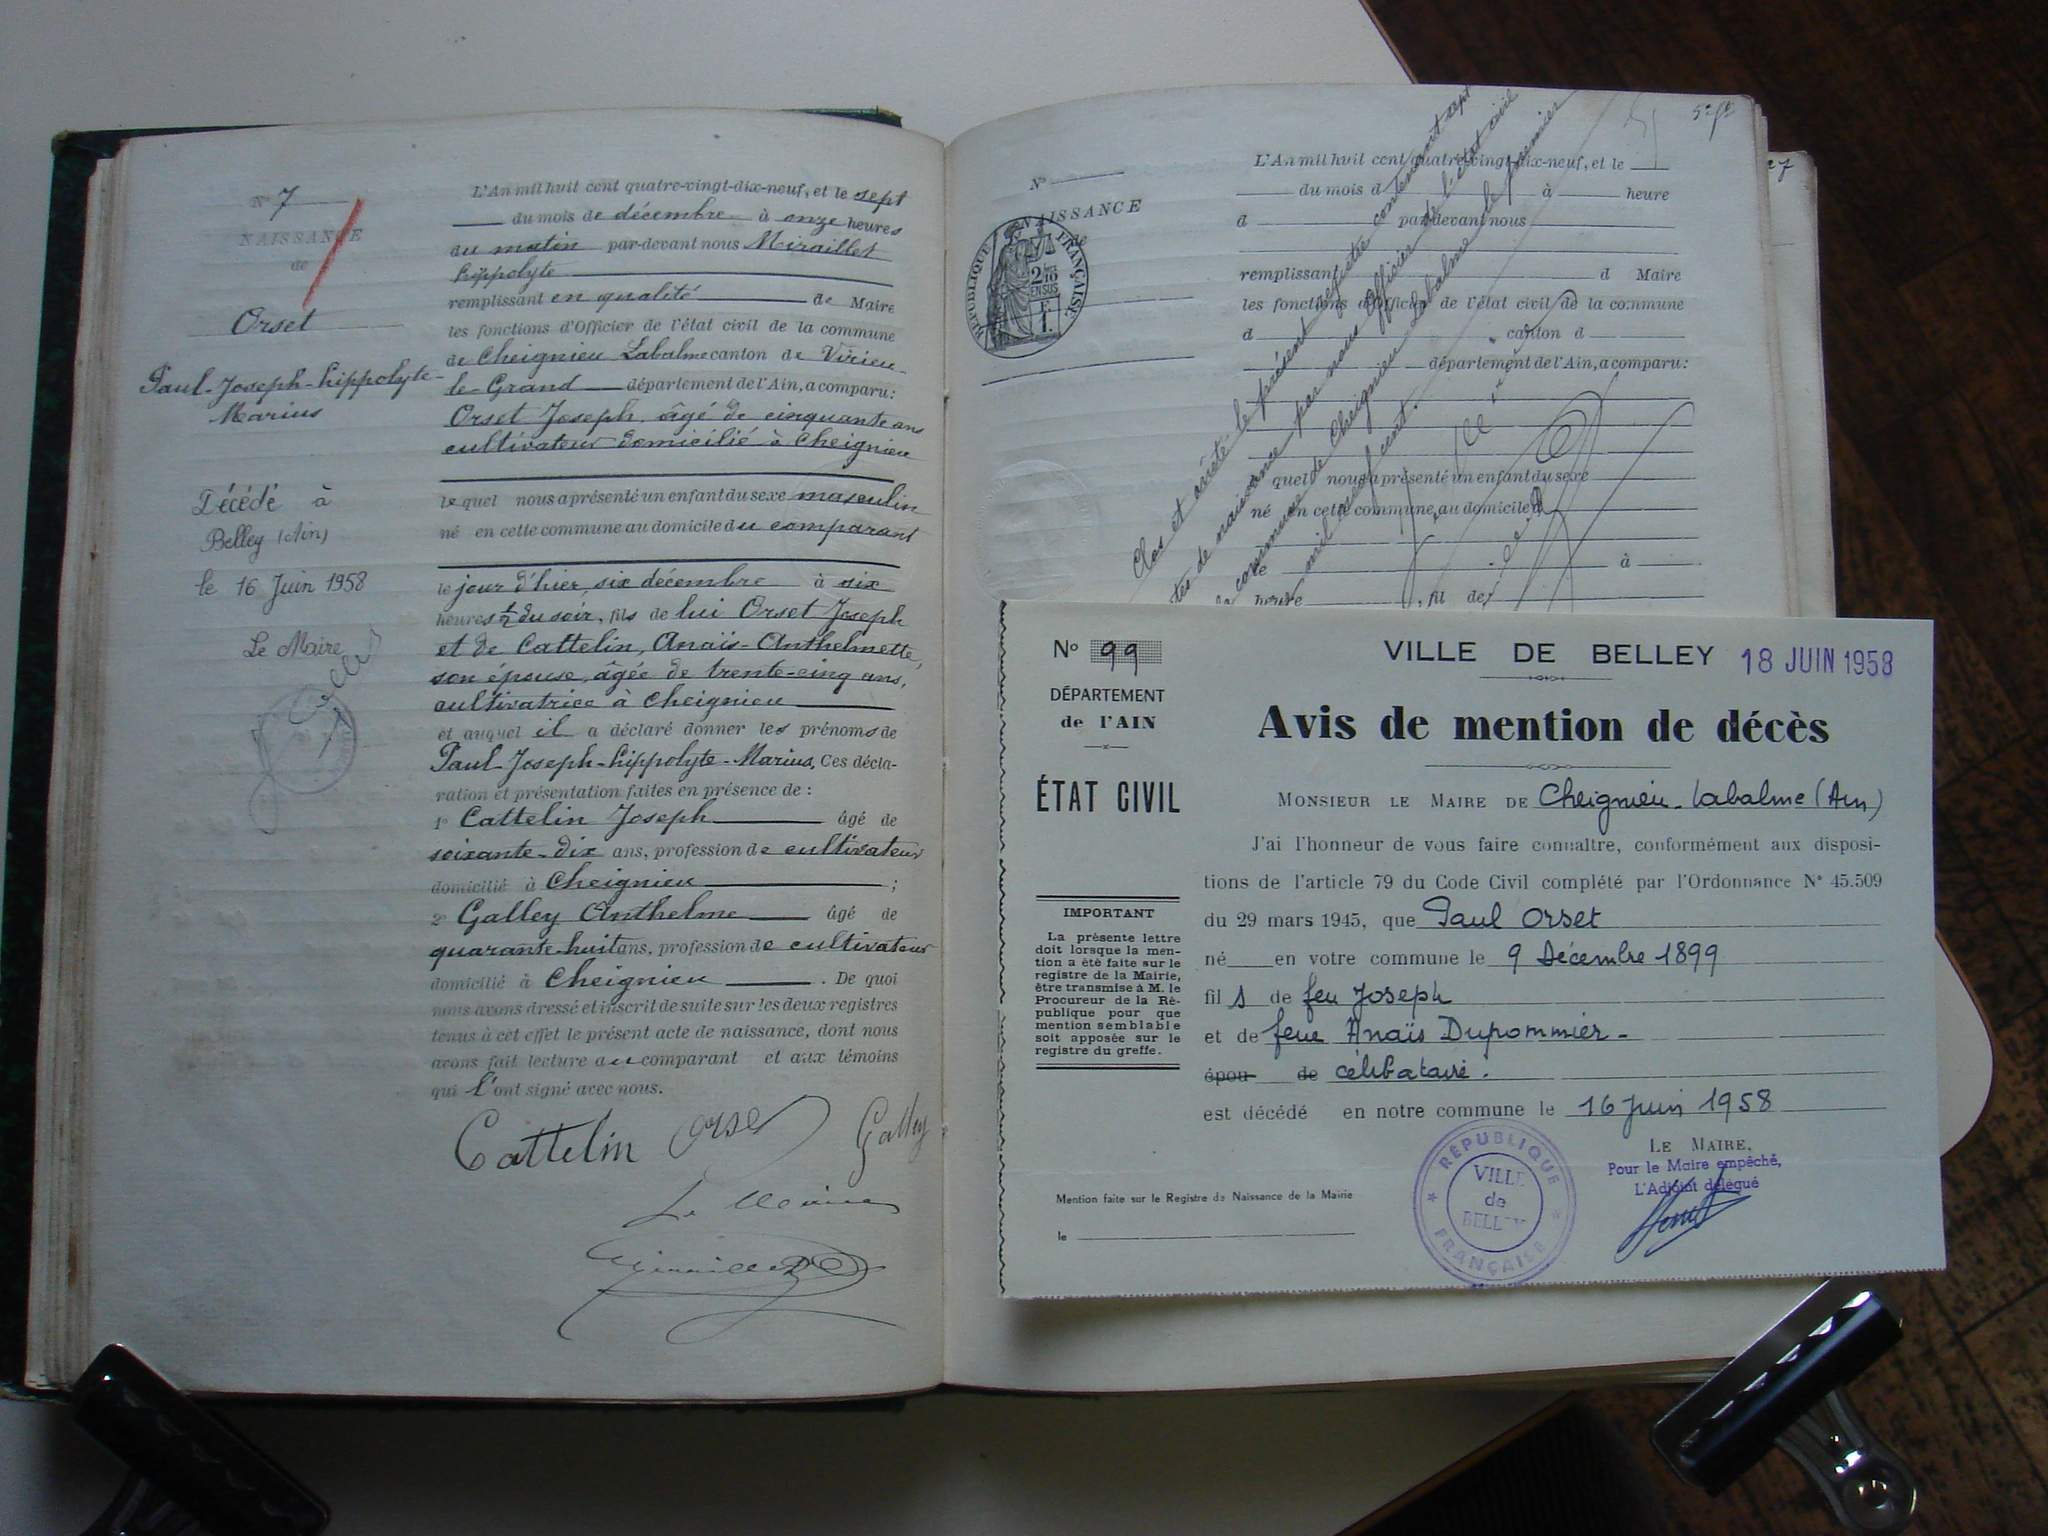 N° 7
NAISSANCE
de
Orset
Paul-Joseph-hippolyte-
Marius
Décédé à
Belley (Ain)
le 16 Juin 1958
Le Maire
L'An mil huit cent quatre-vingt-dix-neuf, et le sept
du mois de décembre à onze heures
du matin par-devant nous Miraillet
hippolyte
remplissant en qualité de Maire
les fonctions d'Officier de l'état civil de la commune
de Cheignieu Labalme canton de Virieu-
le Grand département de l'Ain, a comparu:
Orset Joseph, âgé de cinquante ans
cultivateur domicilié à Cheignieu
lequel nous a présenté un enfant du sexe masculin
né en cette commune au domicile du comparant
le jour d'hier, six décembre à six
heures ½ du soir, fils de lui Orset Joseph
et de Cattelin, Anaïs-Anthelmette,
son épouse, âgée de trente-cinq ans,
cultivatrice à Cheignieu
et auquel il a déclaré donner les prénoms de
Paul-Joseph-hippolyte-Marius. Ces décla-
ration et présentation faites en présence de :
1° Cattelin Joseph âgé de
soixante-dix ans, profession de cultivateur
domicilié à Cheignieu ;
2° Galley Anthelme âgé de
quarante-huit ans, profession de cultivateur
domicilié à Cheignieu . De quoi
nous avons dressé et inscrit de suite sur les deux registres
tenus à cet effet le présent acte de naissance, dont nous
avons fait lecture au comparant et aux témoins
qui l'ont signé avec nous.
Cattelin Orset Galley
Le Maire
Miraillet
5e ft
27
N°
NAISSANCE
de
RÉPUBLIQUE FRANÇAISE
2/10
EN SUS
F
1.
L'An mil huit cent quatre-vingt-dix-neuf, et le
du mois d à heure
d par-devant nous
remplissant d Maire
les fonctions d'Officier de l'état civil de la commune
d canton d
département de l'Ain, a comparu:
quel nous a présenté un enfant du sexe
né en cette commune au domicile d
le à
heure , fil de
Clos et arrêté le présent registre contenant sept
actes de naissance par nous Officier de l'état civil
de la commune de Cheignieu Labalme le premier
mil neuf cent.
N° 99
DÉPARTEMENT
de l'AIN
ÉTAT CIVIL
IMPORTANT
La présente lettre
doit lorsque la men-
tion a été faite sur le
registre de la Mairie,
être transmise à M. le
Procureur de la Ré-
publique pour que
mention semblable
soit apposée sur le
registre du greffe.
VILLE DE BELLEY 18 JUIN 1958
Avis de mention de décès
MONSIEUR LE MAIRE DE Cheignieu-Labalme (Ain)
J'ai l'honneur de vous faire connaître, conformément aux disposi-
tions de l'article 79 du Code Civil complété par l'Ordonnance N° 45.509
du 29 mars 1945, que Paul Orset
né en votre commune le 9 Décembre 1899
fils de feu Joseph
et de feue Anaïs Dupommier-
épou de célibataire.
est décédé en notre commune le 16 Juin 1958
LE MAIRE,
Pour le Maire empêché,
L'Adjoint délégué
RÉPUBLIQUE FRANÇAISE
VILLE
de
BELLEY
Mention faite sur le Registre de Naissance de la Mairie
le